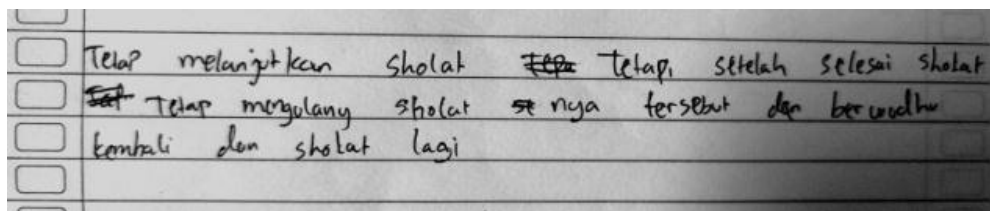 Tetap melanjutkan sholat tetapi setelah selesai sholat
Tetap mengulang sholat nya tersebut dan berwudhu
kembali dan sholat lagi